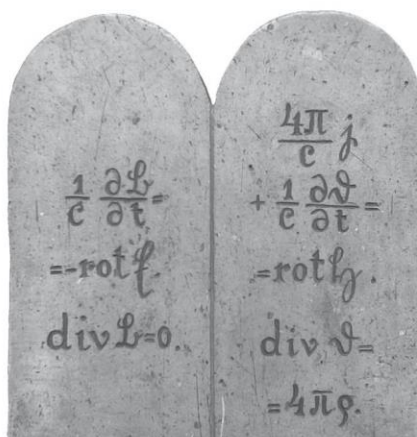 1/c ∂𝔅/∂t=
=-rot 𝔈.
div 𝔅=0.
4π/c j
+ 1/c ∂𝔇/∂t=
=rot ℌ.
div 𝔇=
=4πρ.